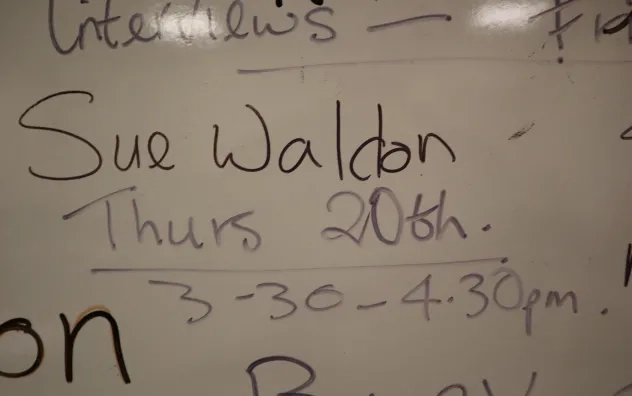 Interviews —
Sue Waldon
Thurs 20th.
3-30-4.30pm.
on